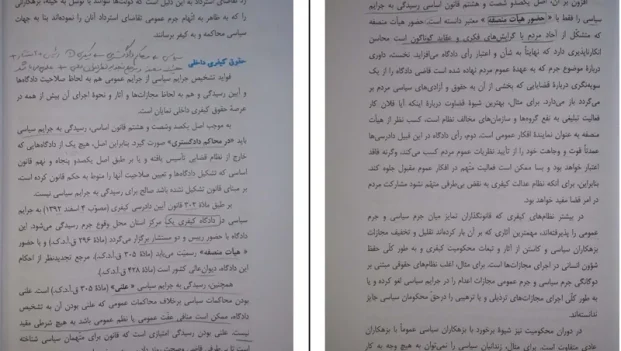 سیاسی محاکمه و به کیفر برسانند.
حقوق کیفری داخلی
فواید تشخیص جرایم سیاسی از جرایم عمومی هم به لحاظ صلاحیت دادگاه‌ها
و آیین رسیدگی و هم به لحاظ مجازات‌ها و آثار و نحوهٔ اجرای آن بیش از همه در
عرصهٔ حقوق کیفری داخلی نمایان است.
به موجب اصل یکصد و شصت و هشتم قانون اساسی، رسیدگی به جرایم سیاسی
باید «در محاکم دادگستری» صورت گیرد. بنابراین اصل، هیچ یک از دادگاه‌هایی که
خارج از نظام قضایی تأسیس یافته و یا بر طبق اصل یکصد و پنجاه و نهم قانون
اساسی که تشکیل دادگاه‌ها و تعیین صلاحیت آنها را منوط به حکم قانون کرده است،
بر مبنای قانون تشکیل نشده باشد صالح برای رسیدگی به جرایم سیاسی نیست.
بر طبق مادهٔ ۳۰۲ قانون آیین دادرسی کیفری (مصوب ۴ اسفند ۱۳۹۲) به جرایم
سیاسی در دادگاه کیفری یک مرکز استان محل وقوع جرم رسیدگی می‌شود. این
دادگاه با حضور رییس و دو مستشار برگزار می‌گردد (مادهٔ ۲۹۶ ق.آ.د.ک) و با حضور
«هیأت منصفه» رسمیت می‌یابد (مادهٔ ۳۰۵ ق.آ.د.ک). مرجع تجدیدنظر از احکام
این دادگاه، دیوان عالی کشور است (مادهٔ ۴۲۸ ق.آ.د.ک).
همچنین، رسیدگی به جرایم سیاسی «علنی» است (مادهٔ ۳۰۵ ق.آ.د.ک). علنی
بودن محاکمات سیاسی برخلاف محاکمات عمومی که علنی بودن آن به تشخیص
دادگاه، ممکن است منافی عفت عمومی یا نظم عمومی باشد به هیچ شرطی مقید
نیست. علنی بودن رسیدگی امتیازی است که قانون برای متهمان سیاسی شناخته
افزون بر آن، اصل یکصد و شصت و هشتم قانون اساسی رسیدگی به جرایم
سیاسی را فقط با «حضور هیأت منصفه» معتبر دانسته است. حضور هیأت منصفه
که متشکل از آحاد مردم با گرایش‌های فکری و عقاید گوناگون است محاسن
انکارناپذیری دارد که نهایتاً به شأن و اعتبار رأی دادگاه می‌افزاید. نخست، داوری
دربارهٔ موضوع جرم که به عهدهٔ عموم مردم نهاده شده است قاضی دادگاه را از یک
سونگری دربارهٔ قضایایی که بخشی از آن به حقوق و آزادی‌های سیاسی مردم بر
می‌گردد باز می‌دارد. برای مثال، بهترین شیوهٔ قضاوت دربارهٔ اینکه آیا فلان کار
فعالیت تبلیغی به نفع گروه‌ها و سازمان‌های مخالف نظام است، کسب نظر از هیأت
منصفه به عنوان نمایندهٔ افکار عمومی است. دوم، رأی دادگاه در این قبیل دادرسی‌ها
عمدتاً قوت و وجاهت خود را از تأیید نظریات عموم مردم کسب می‌کند، وگرنه فاقد
اعتبار خواهد بود و بسا ممکن است فعالیت متهم در افکار عموم مقبول جلوه کند.
بنابراین، برای آنکه نظام عدالت کیفری به نقض بی‌طرفی متهم نشود مشارکت مردم
در امر قضا مفید خواهد بود.
در بیشتر نظام‌های کیفری که قانونگذاران تمایز میان جرم سیاسی و جرم
عمومی را پذیرفته‌اند، مهمترین آثاری که بر آن بار کرده‌اند تقلیل و تخفیف مجازات
بزهکاران سیاسی و کاستن از آثار و تبعات محکومیت کیفری و به طور کلی حفظ
شؤون انسانی در اجرای مجازات‌ها است. برای مثال، اغلب نظام‌های حقوقی مبتنی بر
دوگانگی جرم سیاسی و جرم عمومی مجازات اعدام را در جرایم سیاسی لغو کرده و یا
به طور کلی اجرای مجازات‌های ترذیلی و یا ترهیبی را در حق محکومان سیاسی جایز
ندانسته‌اند.
در دوران محکومیت نیز شیوهٔ برخورد با بزهکاران سیاسی عموماً با بزهکاران
عادی متفاوت است. برای مثال، زندانیان سیاسی را نمی‌توان به هیچ وجه به کار